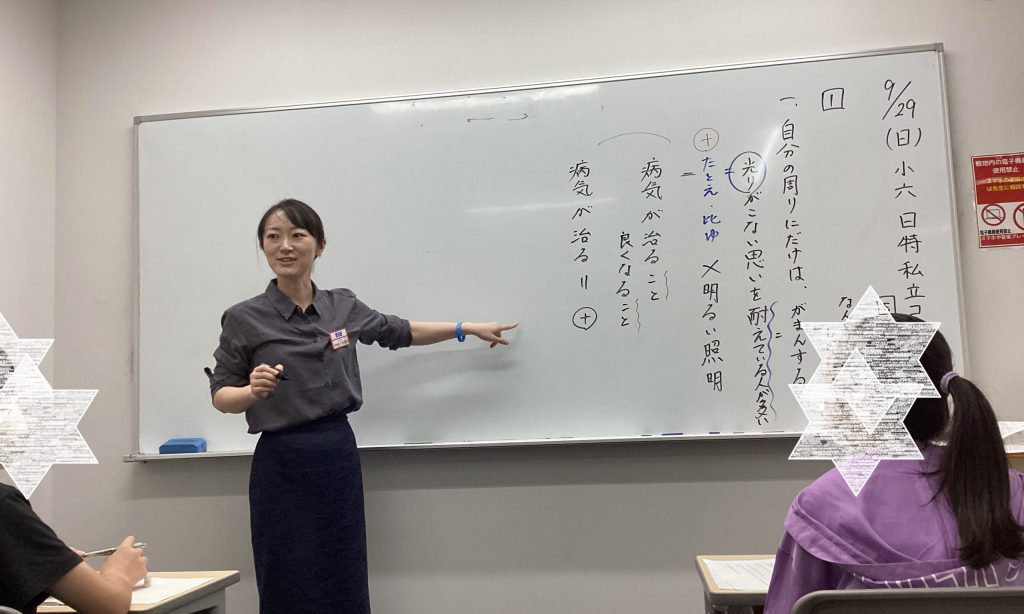 9/29(日)小六日特私立コ
1
一、自分の周りにだけは、がまんする
光りがこない思いを耐えている人が多い
=
+
たとえ・比ゆ ×明るい照明
=
病気が治ること
良くなること
病気が治る = +
敷地内の電子機器
使用禁止